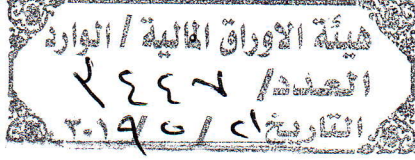 هيئة الاوراق المالية / الوارد
العدد/ ٢٤٤٧
التاريخ/ ٢١ / ٥ / ٢٠١٩